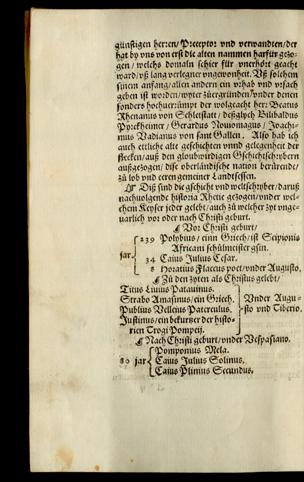 günstigen herren/ Preceptor vnd verwandten/ der
hat by vns von erst die alten nammen harfür gezo-
gen/ welchs domaln schier für vnerhört geacht
ward/ vß lang verlegner vngewonheit. Vß solchem
sinem anfang/ allen andern ein vrhab vnd vrsach
geben ist worden/ wyter zůergründen/ vnder denen
sonders hochuerrümpt der wolgeacht herr Beatus
Rhenanus von Schletstatt/ deßglych Bilibaldus
Pyrckheimer/ Gerardus Nouiomagus/ Joachi-
mus Vadianus von sant Gallen. Also hab ich
auch ettliche alt geschichten vnnd gelegenheit der
flecken/ auß den gloubwirdigen Gschichtschrybern
außgezogen/ dise oberländische nation berürende/
zů lob vnd eeren gemeiner Landtsessen.
Diß sind die gschicht vnd weltschryber/ daruß
nachuolgende historia Rhetie gezogen/ vnder wel-
chem Keyser jeder gelebt/ auch zů welcher zyt vnge-
uarlich vor oder nach Christi geburt.
¶ Vor Christi geburt/
239 Polybius/ einn Griech/ ist Scipionis
Africani schůlmeister gsin.
jar
34 Caius Julius Cesar.
8 Horatius Flaccus poet/ vnder Augusto.
¶ Zů den zyten als Christus gelebt/
Titus Liuius Patauinus.
Strabo Amasinus/ ein Griech.
Publius Velleius Paterculus.
Justinus/ ein bekürtzer der histo-
rien Trogi Pompeij.
Vnder Augu-
sto vnd Tiberio.
¶ Nach Christi geburt/ vnder Vespasiano.
Pomponius Mela.
80 jar Caius Julius Solinus.
Caius Plinius Secundus.